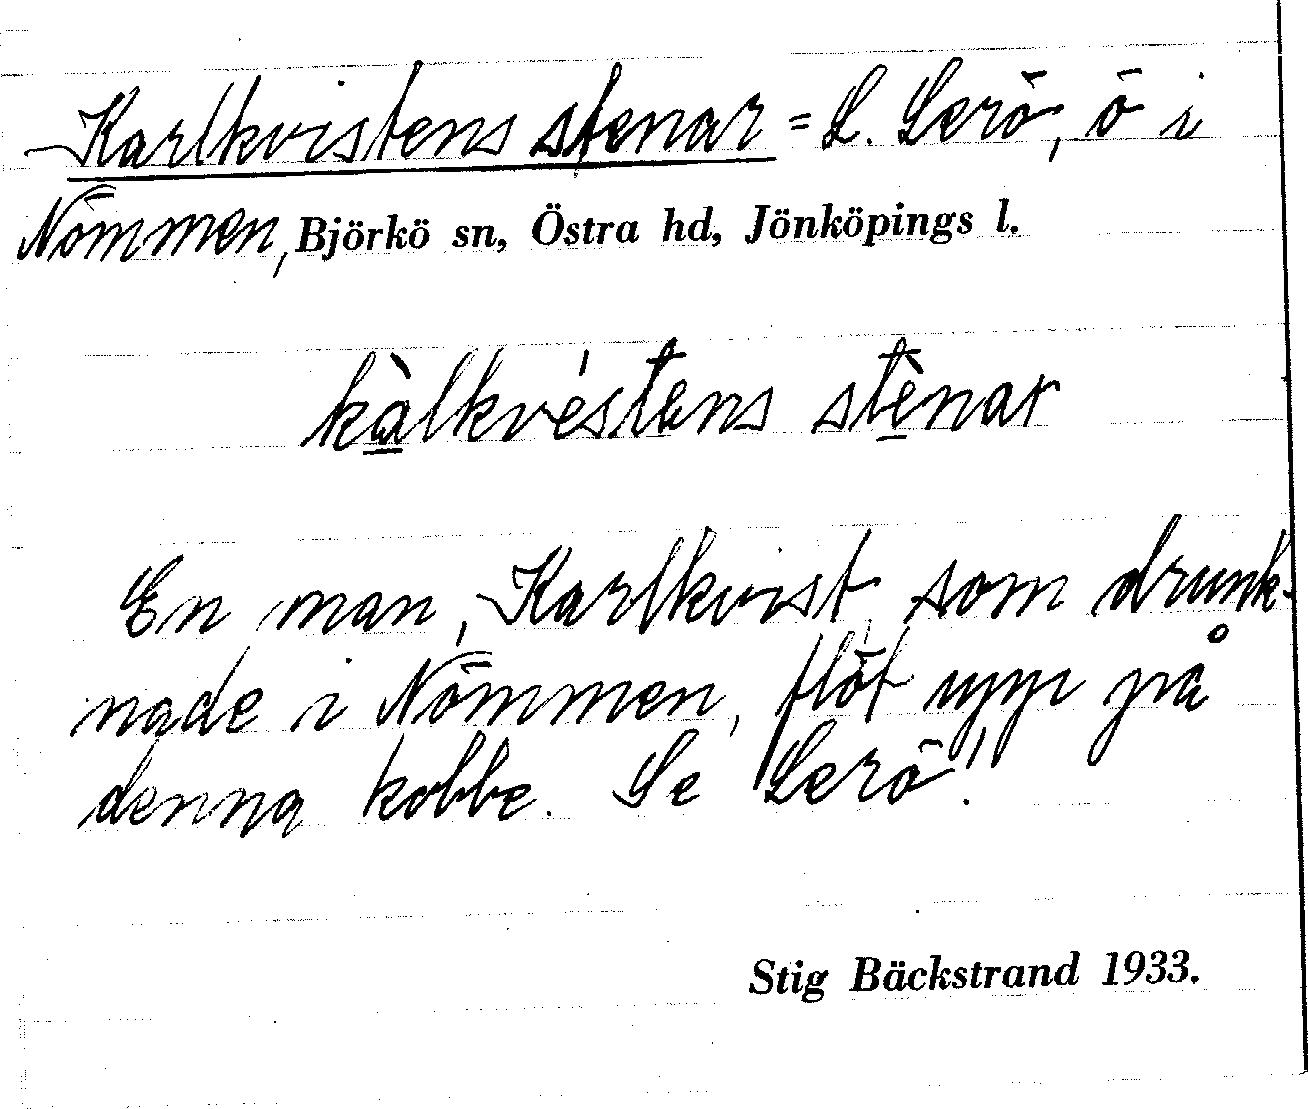 Karlkvistens stenar = L. Lerö, ö i
Nömmen, Björkö sn, Östra hd, Jönköpings l.
kàlkvéstens stènar
En man, Karlkvist, som drunk-
nade i Nömmen, flöt upp på
denna kobbe. Se "Lerö".
Stig Bäckstrand 1933.